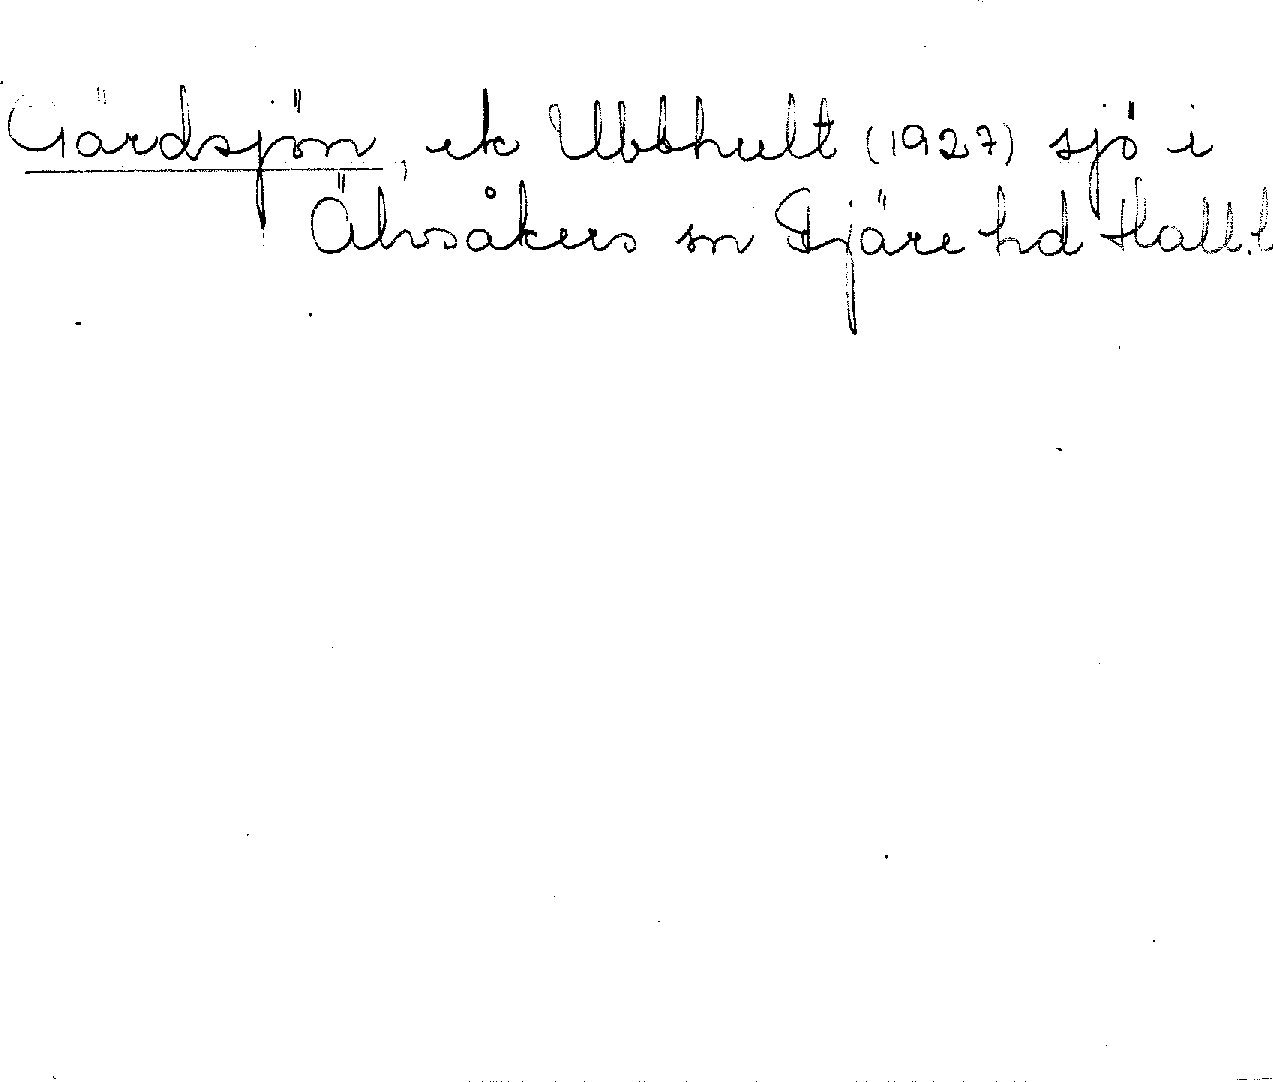 Gärdsjön, ek Ubbhult (1927) sjö i
Älvsåkers sn Fjäre hd Hall.l